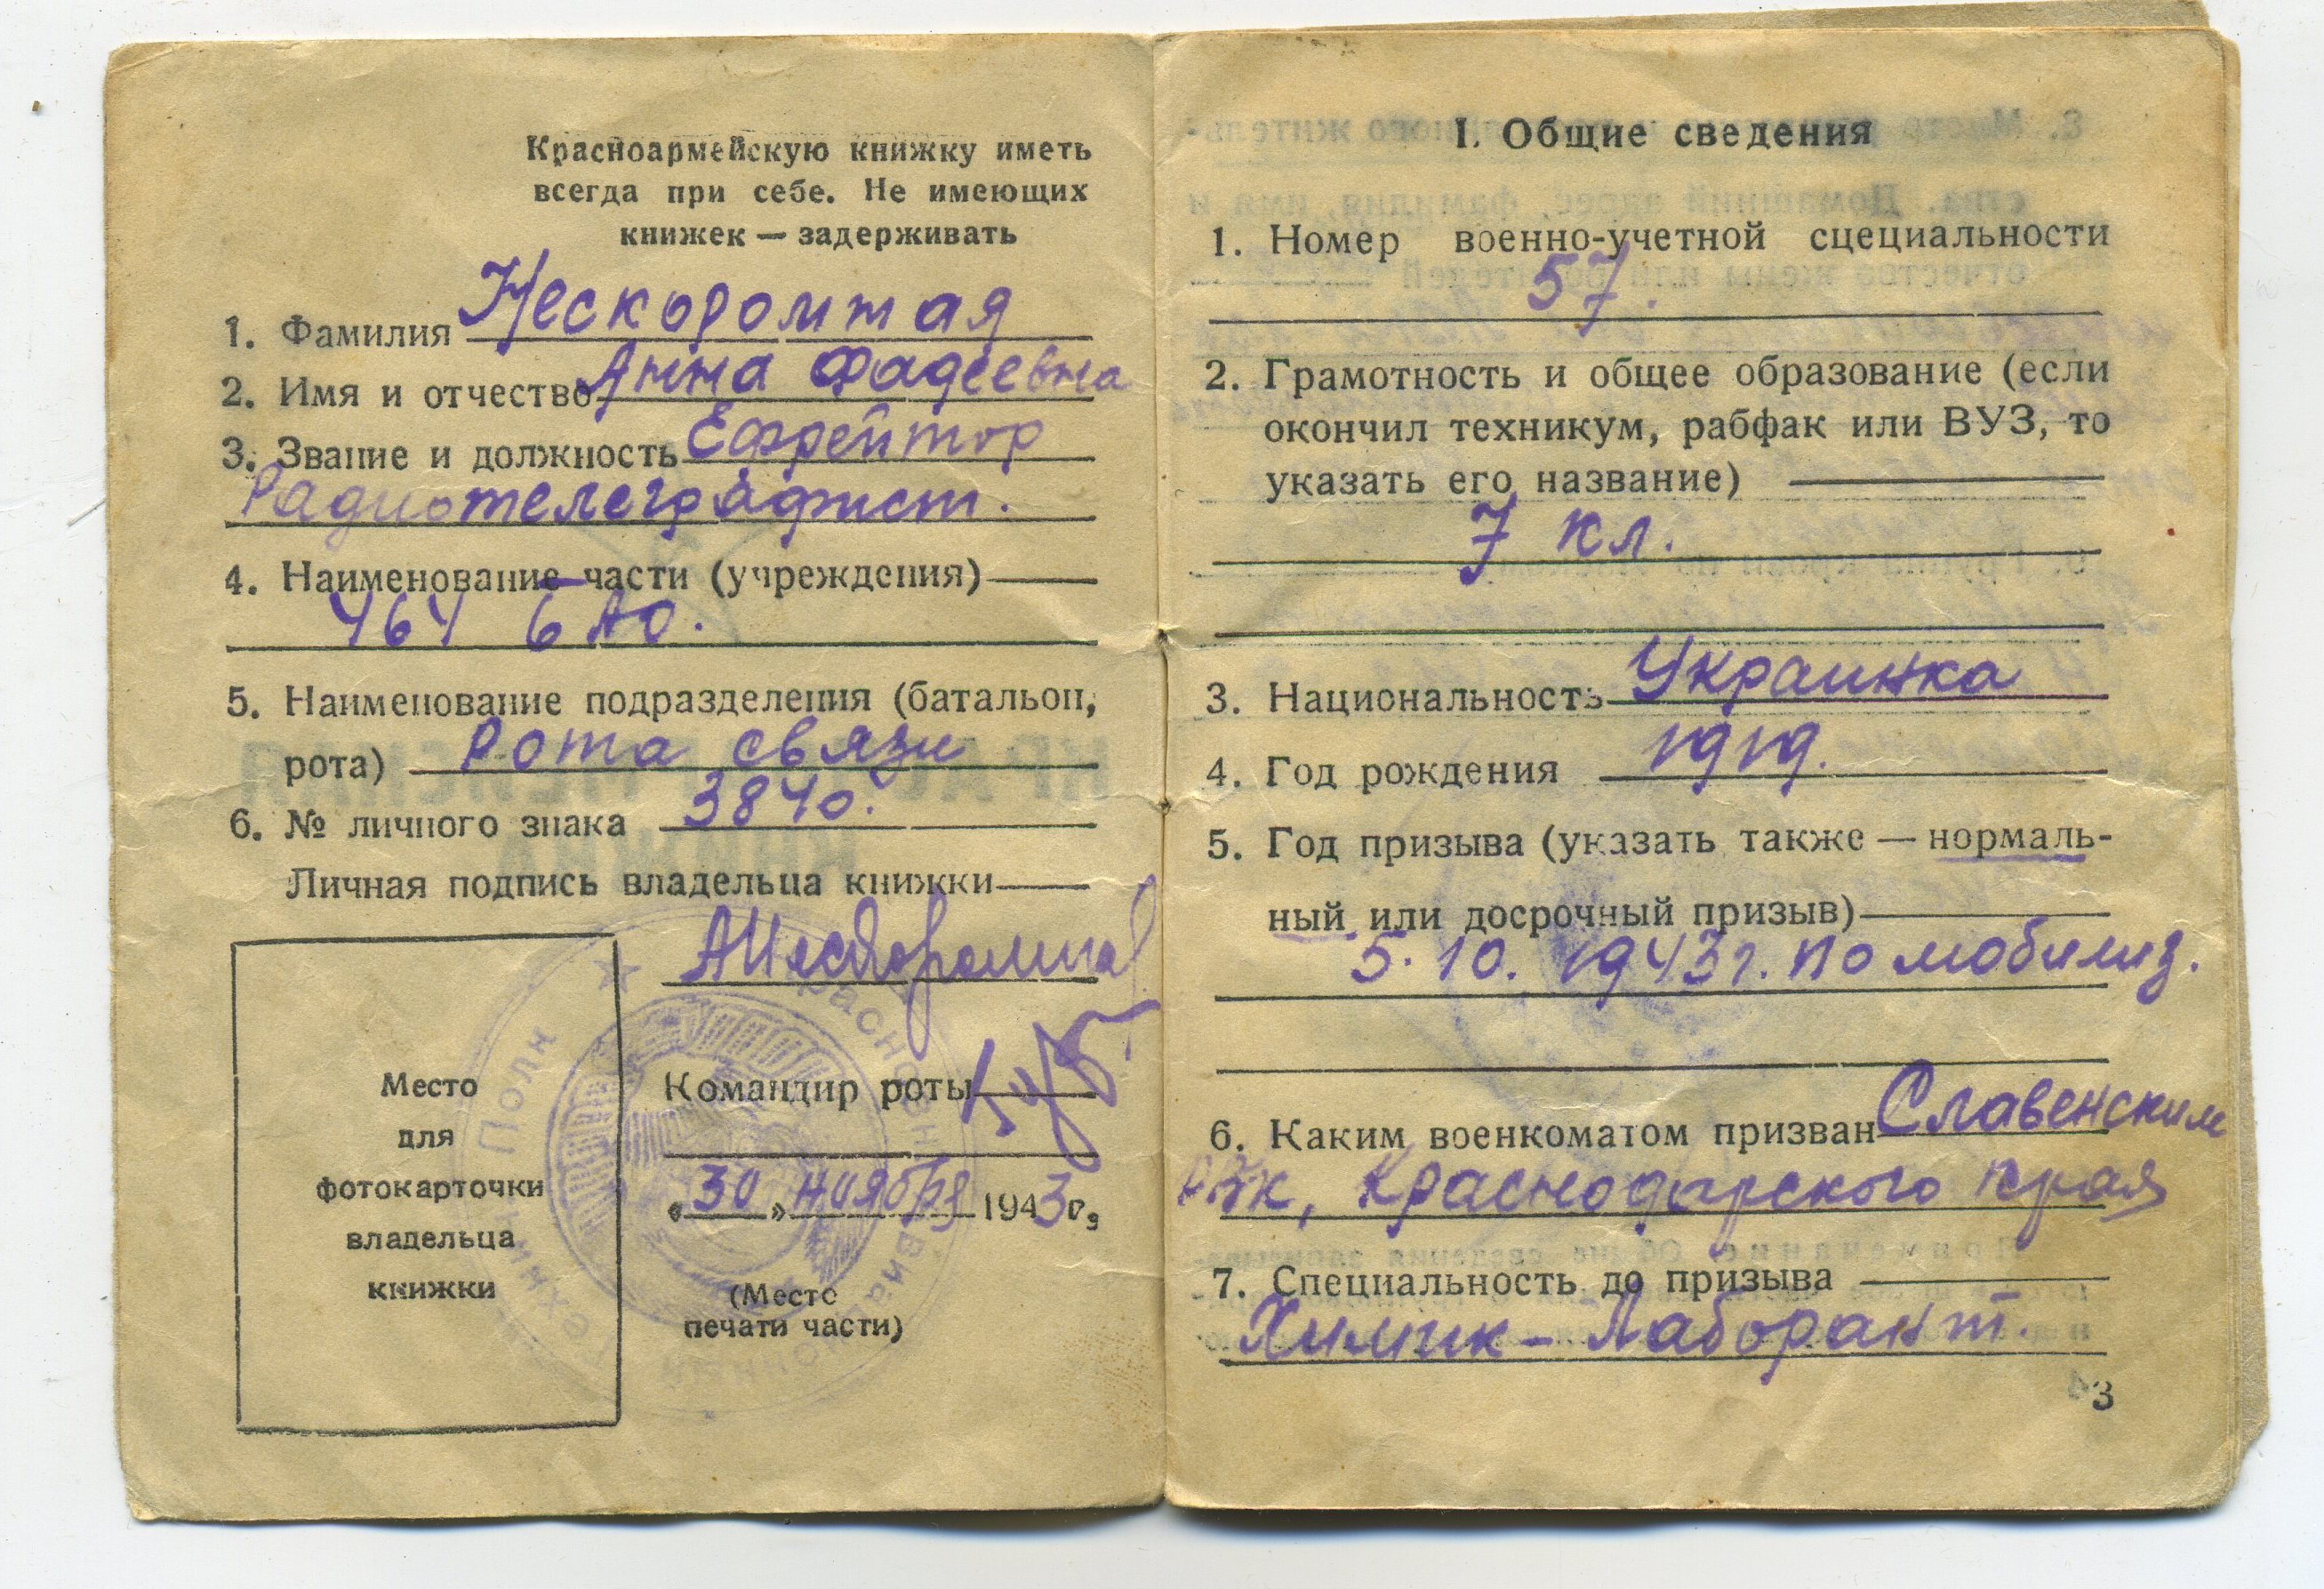 Красноармейскую книжку иметь
всегда при себе. Не имеющих
книжек — задерживать
1. Фамилия Нескоромная
2. Имя и отчество Анна Фадеевна
3. Звание и должность Ефрейтор
Радиотелеграфист.
4. Наименование части (учреждения)
464 БАО.
5. Наименование подразделения (батальон,
рота) Рота связи
6. № личного знака 3840.
Личная подпись владельца книжки
Место
для
фотокарточки
владельца
книжки
Командир роты
«30» ноября 1943 г.
(Место
печати части)
I. Общие сведения
1. Номер военно-учетной сцециальности
57.
2. Грамотность и общее образование (если
окончил техникум, рабфак или ВУЗ, то
указать его название)
7 кл.
3. Национальность Украинка
4. Год рождения 1919.
5. Год призыва (указать также — нормаль-
ный или досрочный призыв)
5.10.1943г. по мобилиз.
6. Каким военкоматом призван Славенским
РВК, Краснодарского края
7. Специальность до призыва
Химик-Лаборант.
3